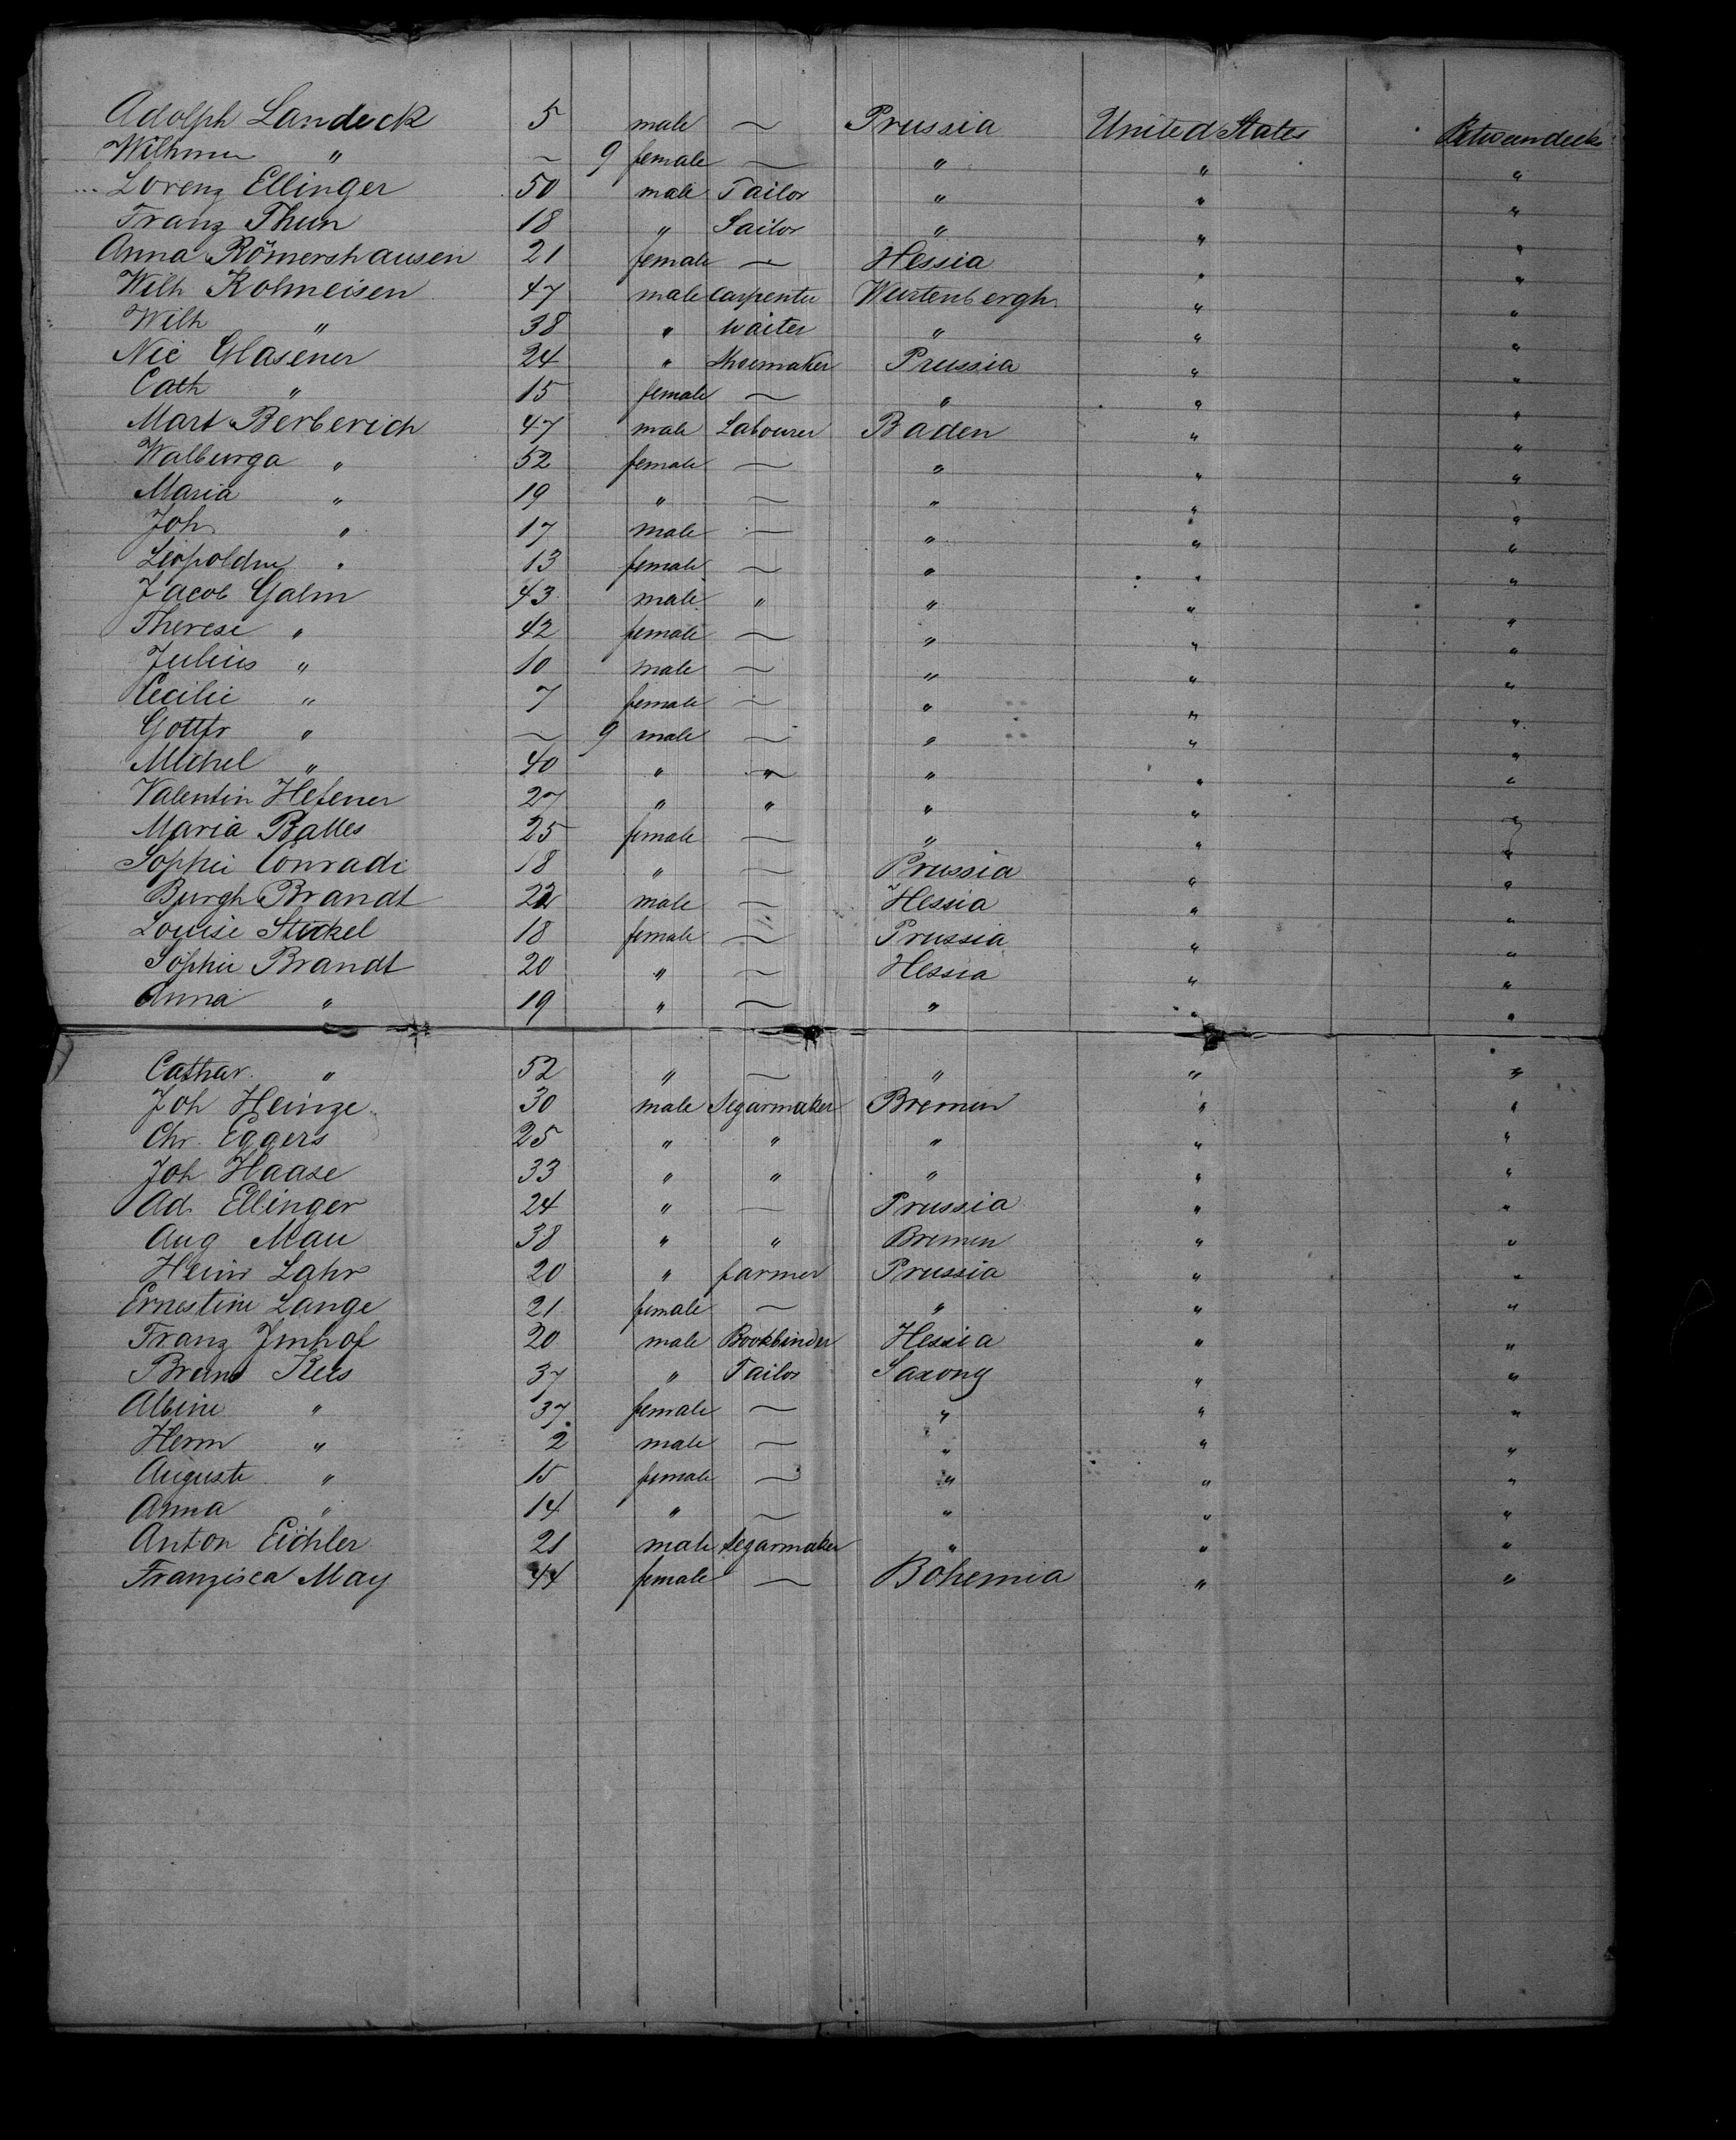 Adolph Landeck 5 male — Prussia United States Betweendecks
Wilhmin " — 9 female — " " "
Lorenz Ellinger 50 male Tailor " " "
Franz Thun 18 " Sailor " " "
Anna Römershausen 21 female — Hessia " "
Wilh Kolmeisen 47 male Carpenter Wurtenbergh " "
Wilh " 38 " Waiter " " "
Nic Glasener 24 " Shoemaker Prussia " "
Cath " 15 female — " " "
Mart Berberich 47 male Labourer Baden " "
Walburga " 52 female — " " "
Maria " 19 " — " " "
Joh " 17 male — " " "
Leopoldine " 13 female — " " "
Jacob Galm 43 male " " " "
Therese " 42 female — " " "
Julius " 10 male — " " "
Cecilie " 7 female — " " "
Gottfr " — 9 male — " " "
Michel " 40 " " " " "
Valentin Hefener 27 " " " " "
Maria Balles 25 female — " " "
Sophie Conradi 18 " — Prussia " "
Burgh Brandt 22 male — Hessia " "
Louise Stickel 18 female — Prussia " "
Sophie Brandt 20 " — Hessia " "
Anna " 19 " — " " "
Cathar. " 52 " — " " "
Joh Heinze 30 male Segarmaker Bremen " "
Chr. Eggers 25 " " " " "
Joh Haase 33 " " " " "
Ad. Ellinger 24 " — Prussia " "
Aug Mau 38 " " Bremen " "
Heinr Lahr 20 " farmer Prussia " "
Ernestine Lange 21 female — " " "
Franz Jmhof 20 male Bookbinder Hessia " "
Kees 37 " Tailor Saxony " "
Albine " 37 female — " " "
Herm " 2 male — " " "
Auguste " 15 female — " " "
Anna " 14 " — " " "
Anton Eichler 21 male Segarmaker " " "
Franzisca May 44 female — Bohemia " "